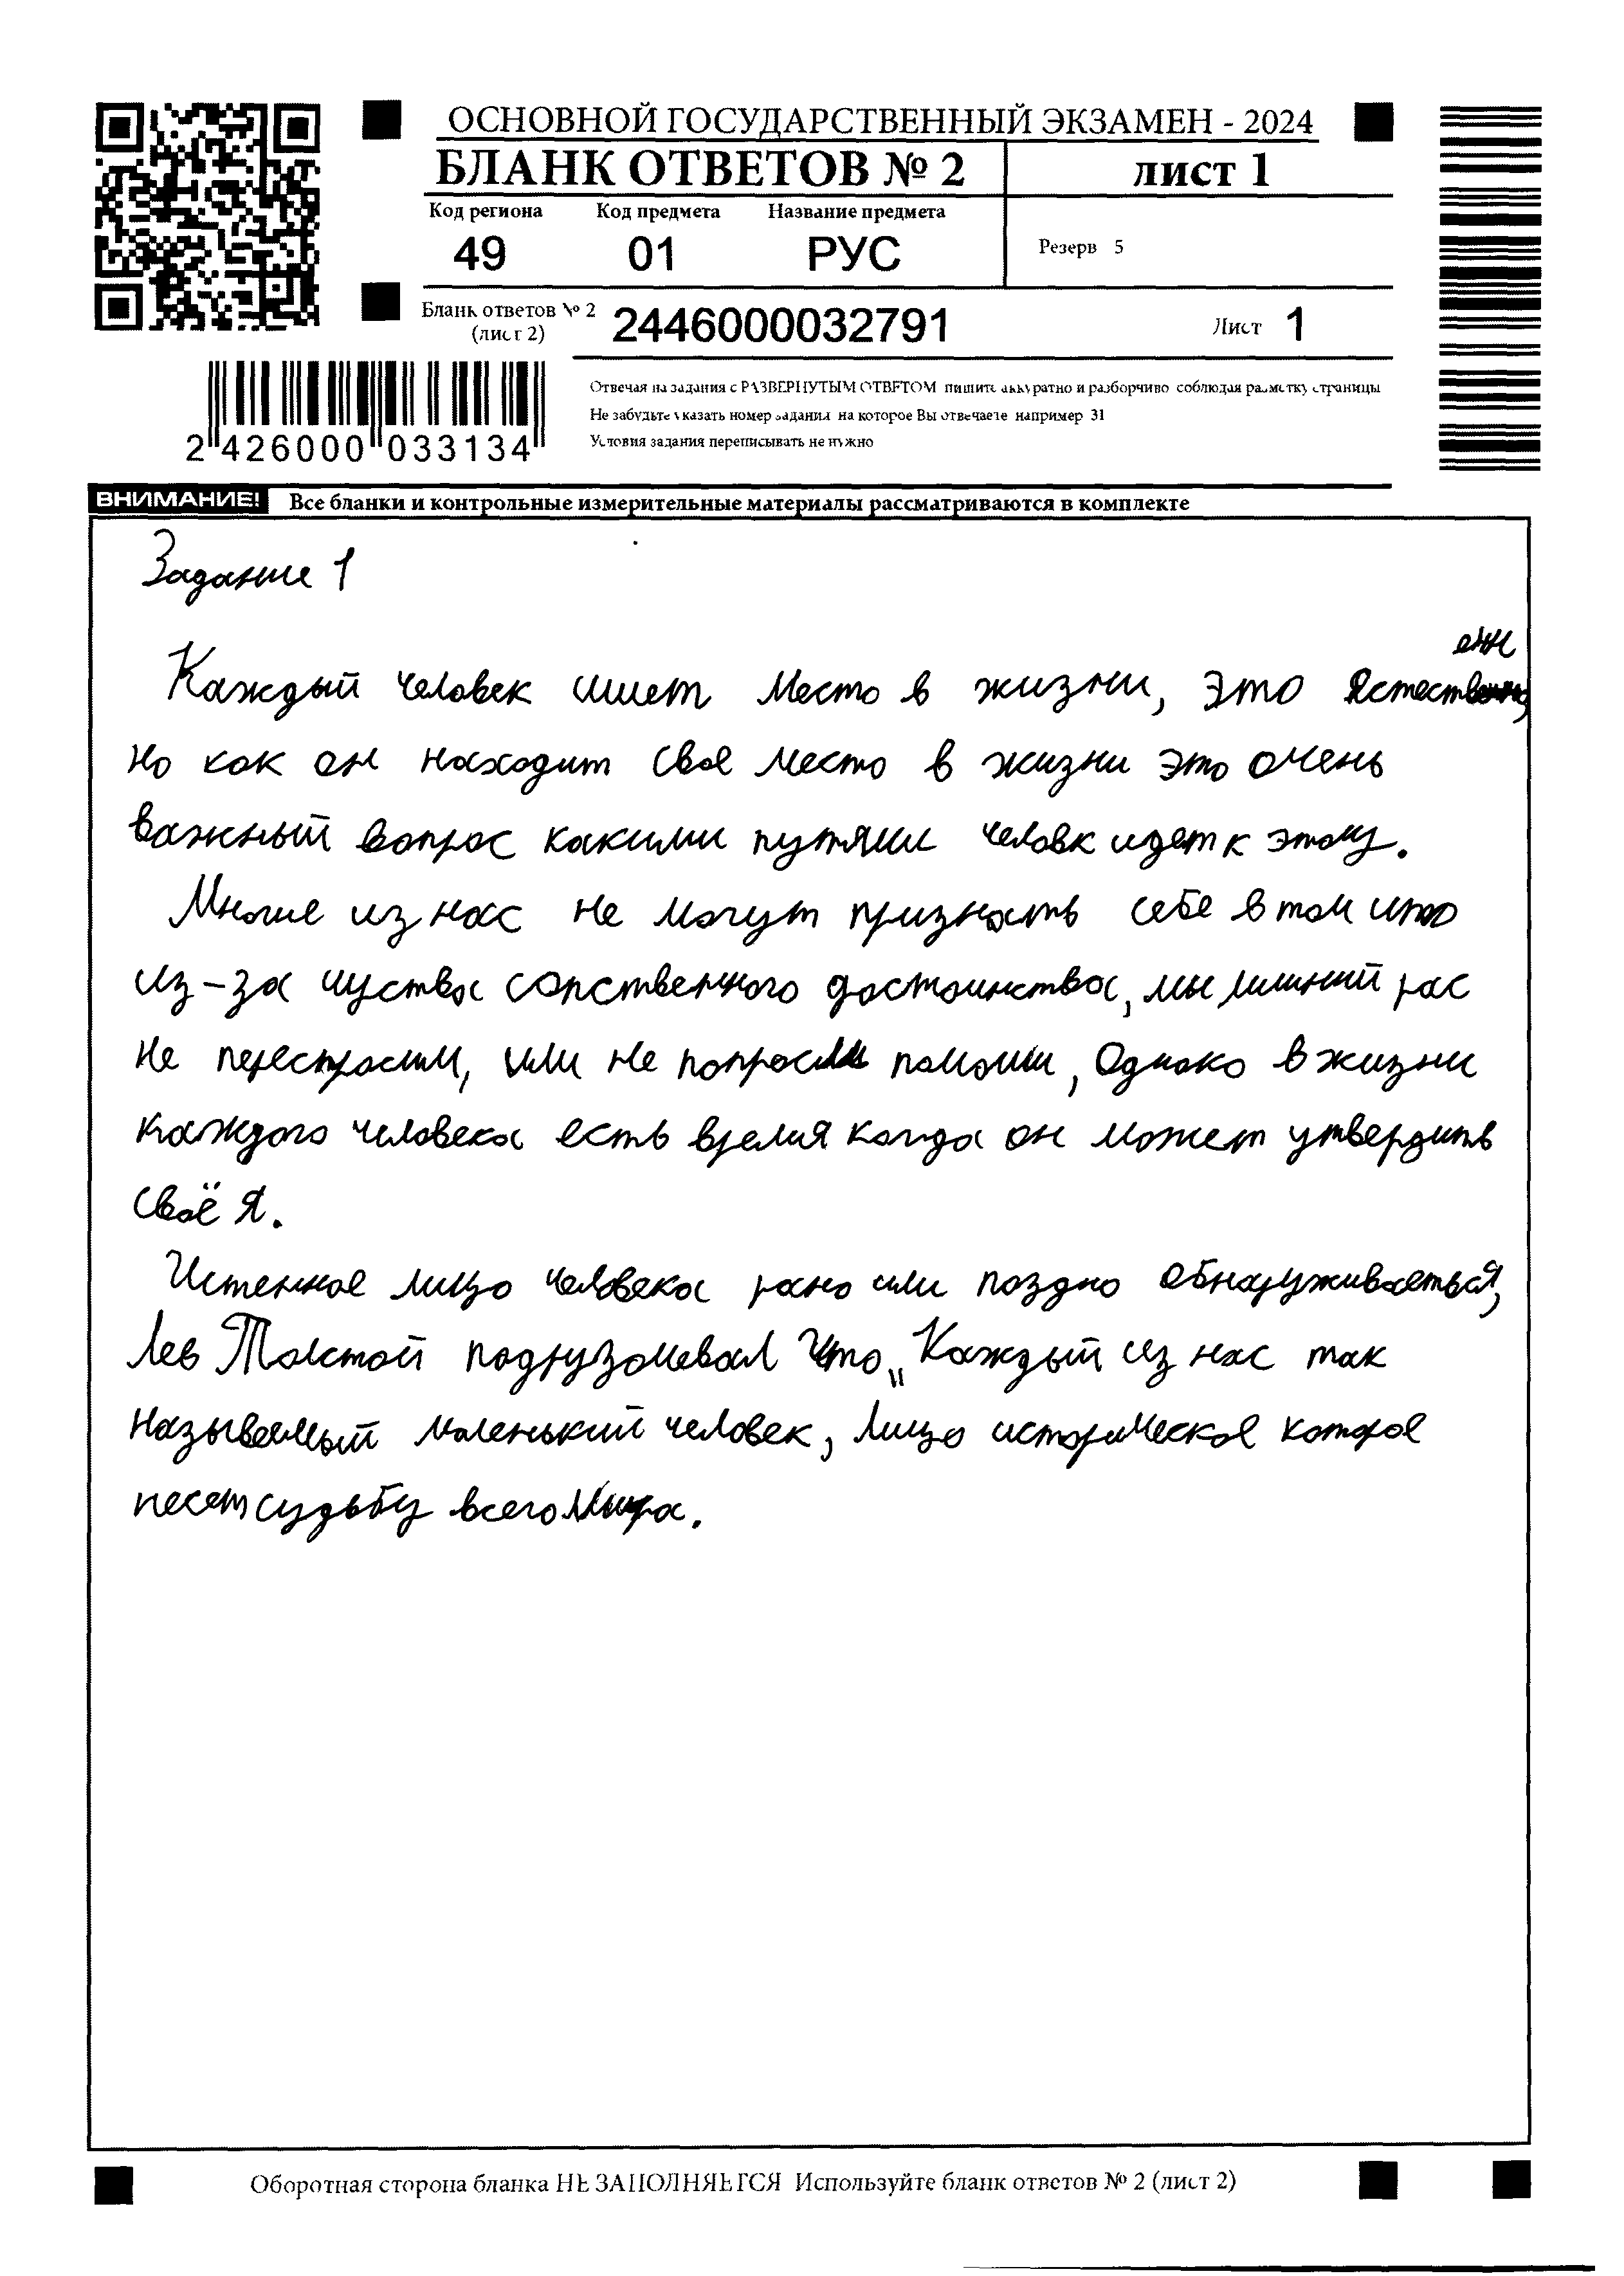 ОСНОВНОЙ ГОСУДАРСТВЕННЫЙ ЭКЗАМЕН - 2024
БЛАНК ОТВЕТОВ № 2 лист 1
Код региона Код предмета Название предмета
49 01 РУС
Резерв 5
Бланк ответов № 2 (лист 2) 2446000032791 Лист 1
Отвечая на задания с РАЗВЕРНУТЫМ ОТВЕТОМ пишите аккуратно и разборчиво соблюдая разметку страницы
Не забудьте указать номер задания на которое Вы отвечаете например 31
Условия задания переписывать не нужно
2 426000 033134
ВНИМАНИЕ! Все бланки и контрольные измерительные материалы рассматриваются в комплекте
Задание 1
Каждый человек имеет место в жизни, это естественно,
но как он находит своё место в жизни это очень
важный вопрос какими путями человк идет к этому.
Многие из нас не могут признать себе в том что
из-за чуства сопственного достоинства, мы лишний рас
не переспросим, или не попросим помощи, Однако в жизни
каждого человека есть время когда он может утвердить
своё Я.
Истенное лицо человека рано или поздно обнаруживаеться,
Лев Толстой подрузомевал что „Каждый из нас так
называемый маленький человек, лицо историческое которое
несет судьбу всего мира.
Оборотная сторона бланка НЕ ЗАПОЛНЯЕТСЯ Используйте бланк ответов № 2 (лист 2)